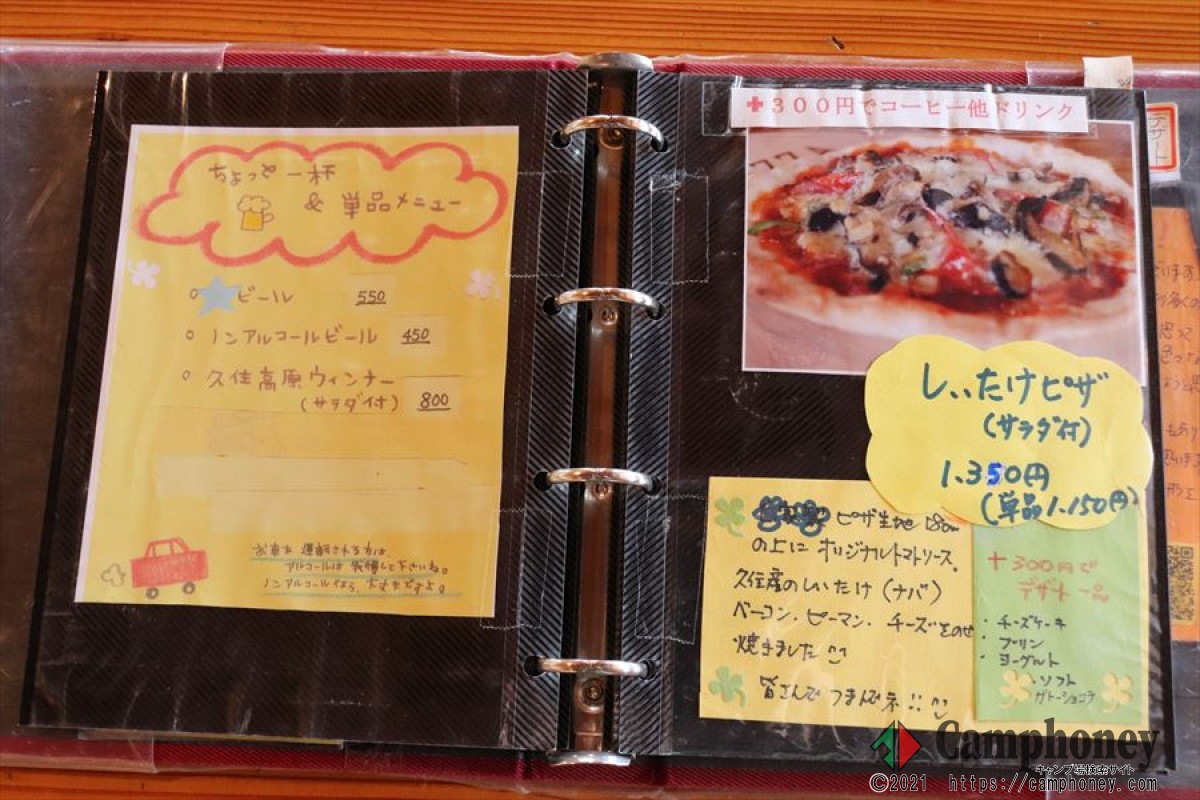 ちょっと一杯
& 単品メニュー
○ ビール 550
○ ノンアルコールビール 450
○ 久住高原ウィンナー
(サラダ付) 800
お車を運転される方は、
アルコールは我慢して下さいね。
ノンアルコールなら、大丈夫ですよ。
✚300円でコーヒー他ドリンク
しいたけピザ
(サラダ付)
1.350円
(単品1.150円)
ピザ生地18cm
の上にオリジナルトマトソース、
久住産のしいたけ(ナバ)
ベーコン、ピーマン、チーズをのせ
焼きました
皆さんでつまんでネ!!
+300円で
デザート一品
・チーズケーキ
・プリン
・ヨーグルト
・ソフト
ガトーショコラ
デザート
Camphoney
キャンプ場検索サイト
©2021 https://camphoney.com